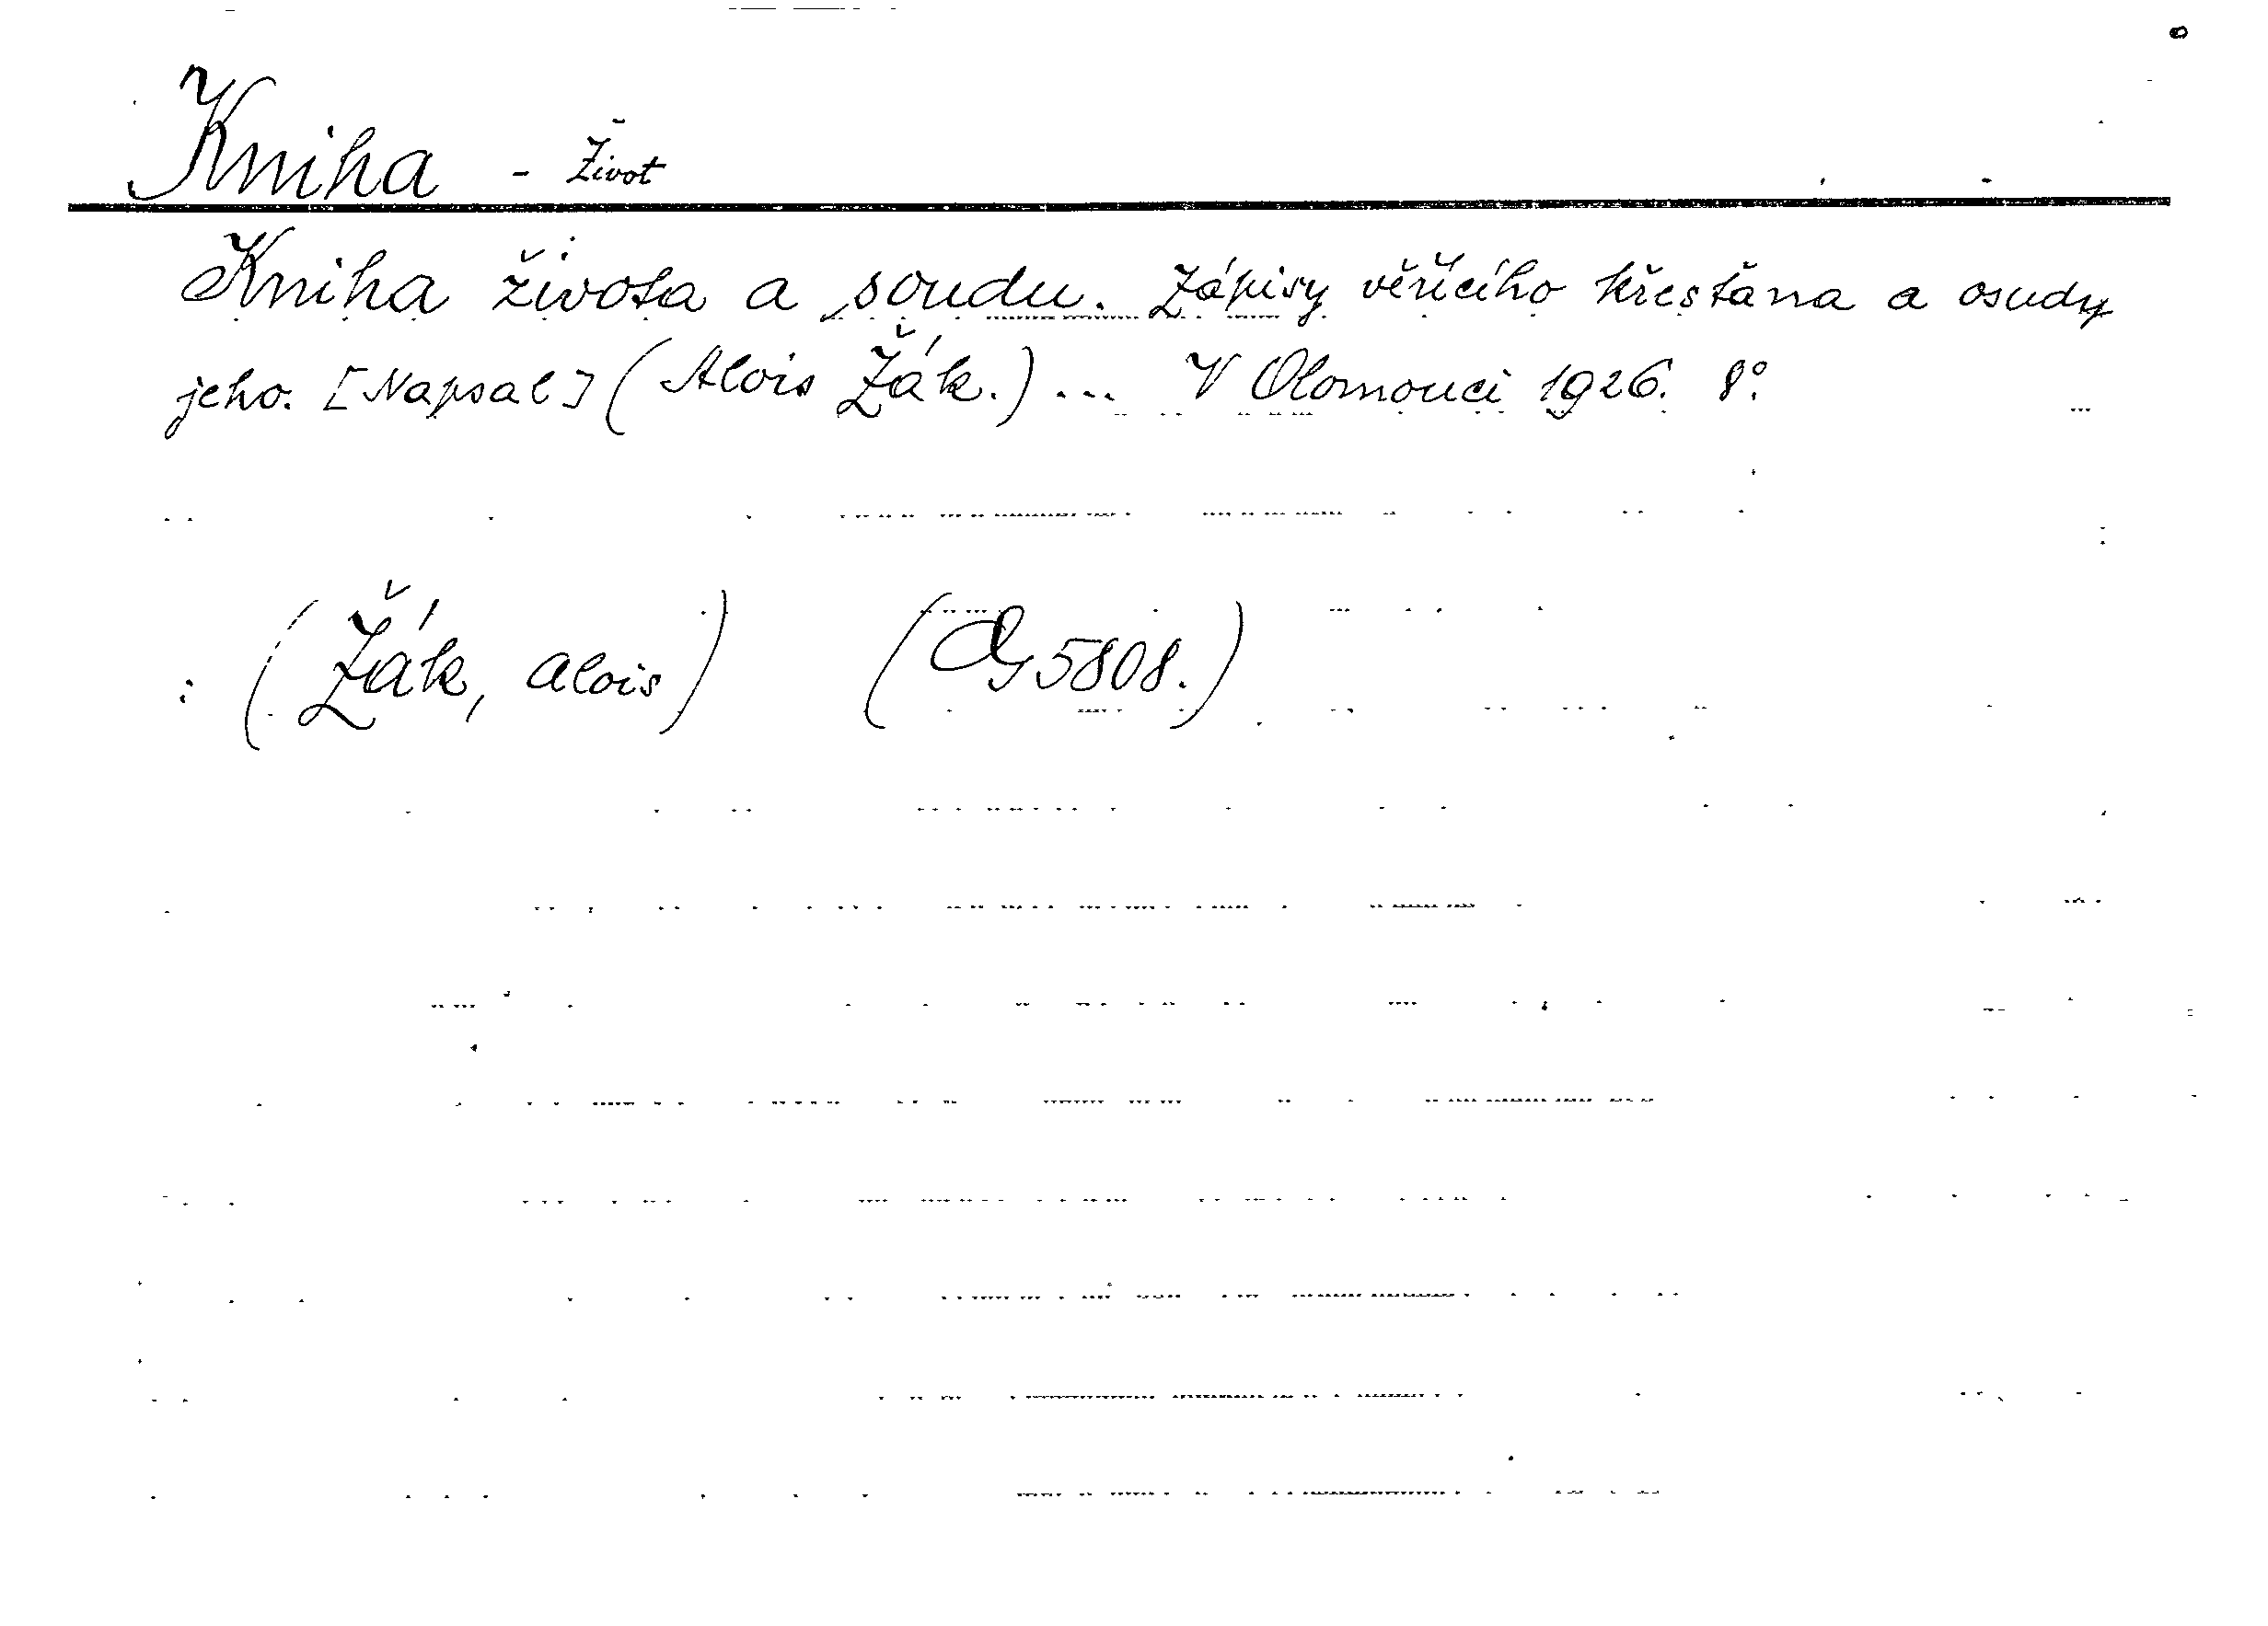 Kniha - Život
Kniha života a soudu. Zápisy věřícího křesťana a osudy
jeho. [Napsal] (Alois Žák.) ... V Olomouci 1926. 8°.
: (Žák, Alois) ( 5808.)